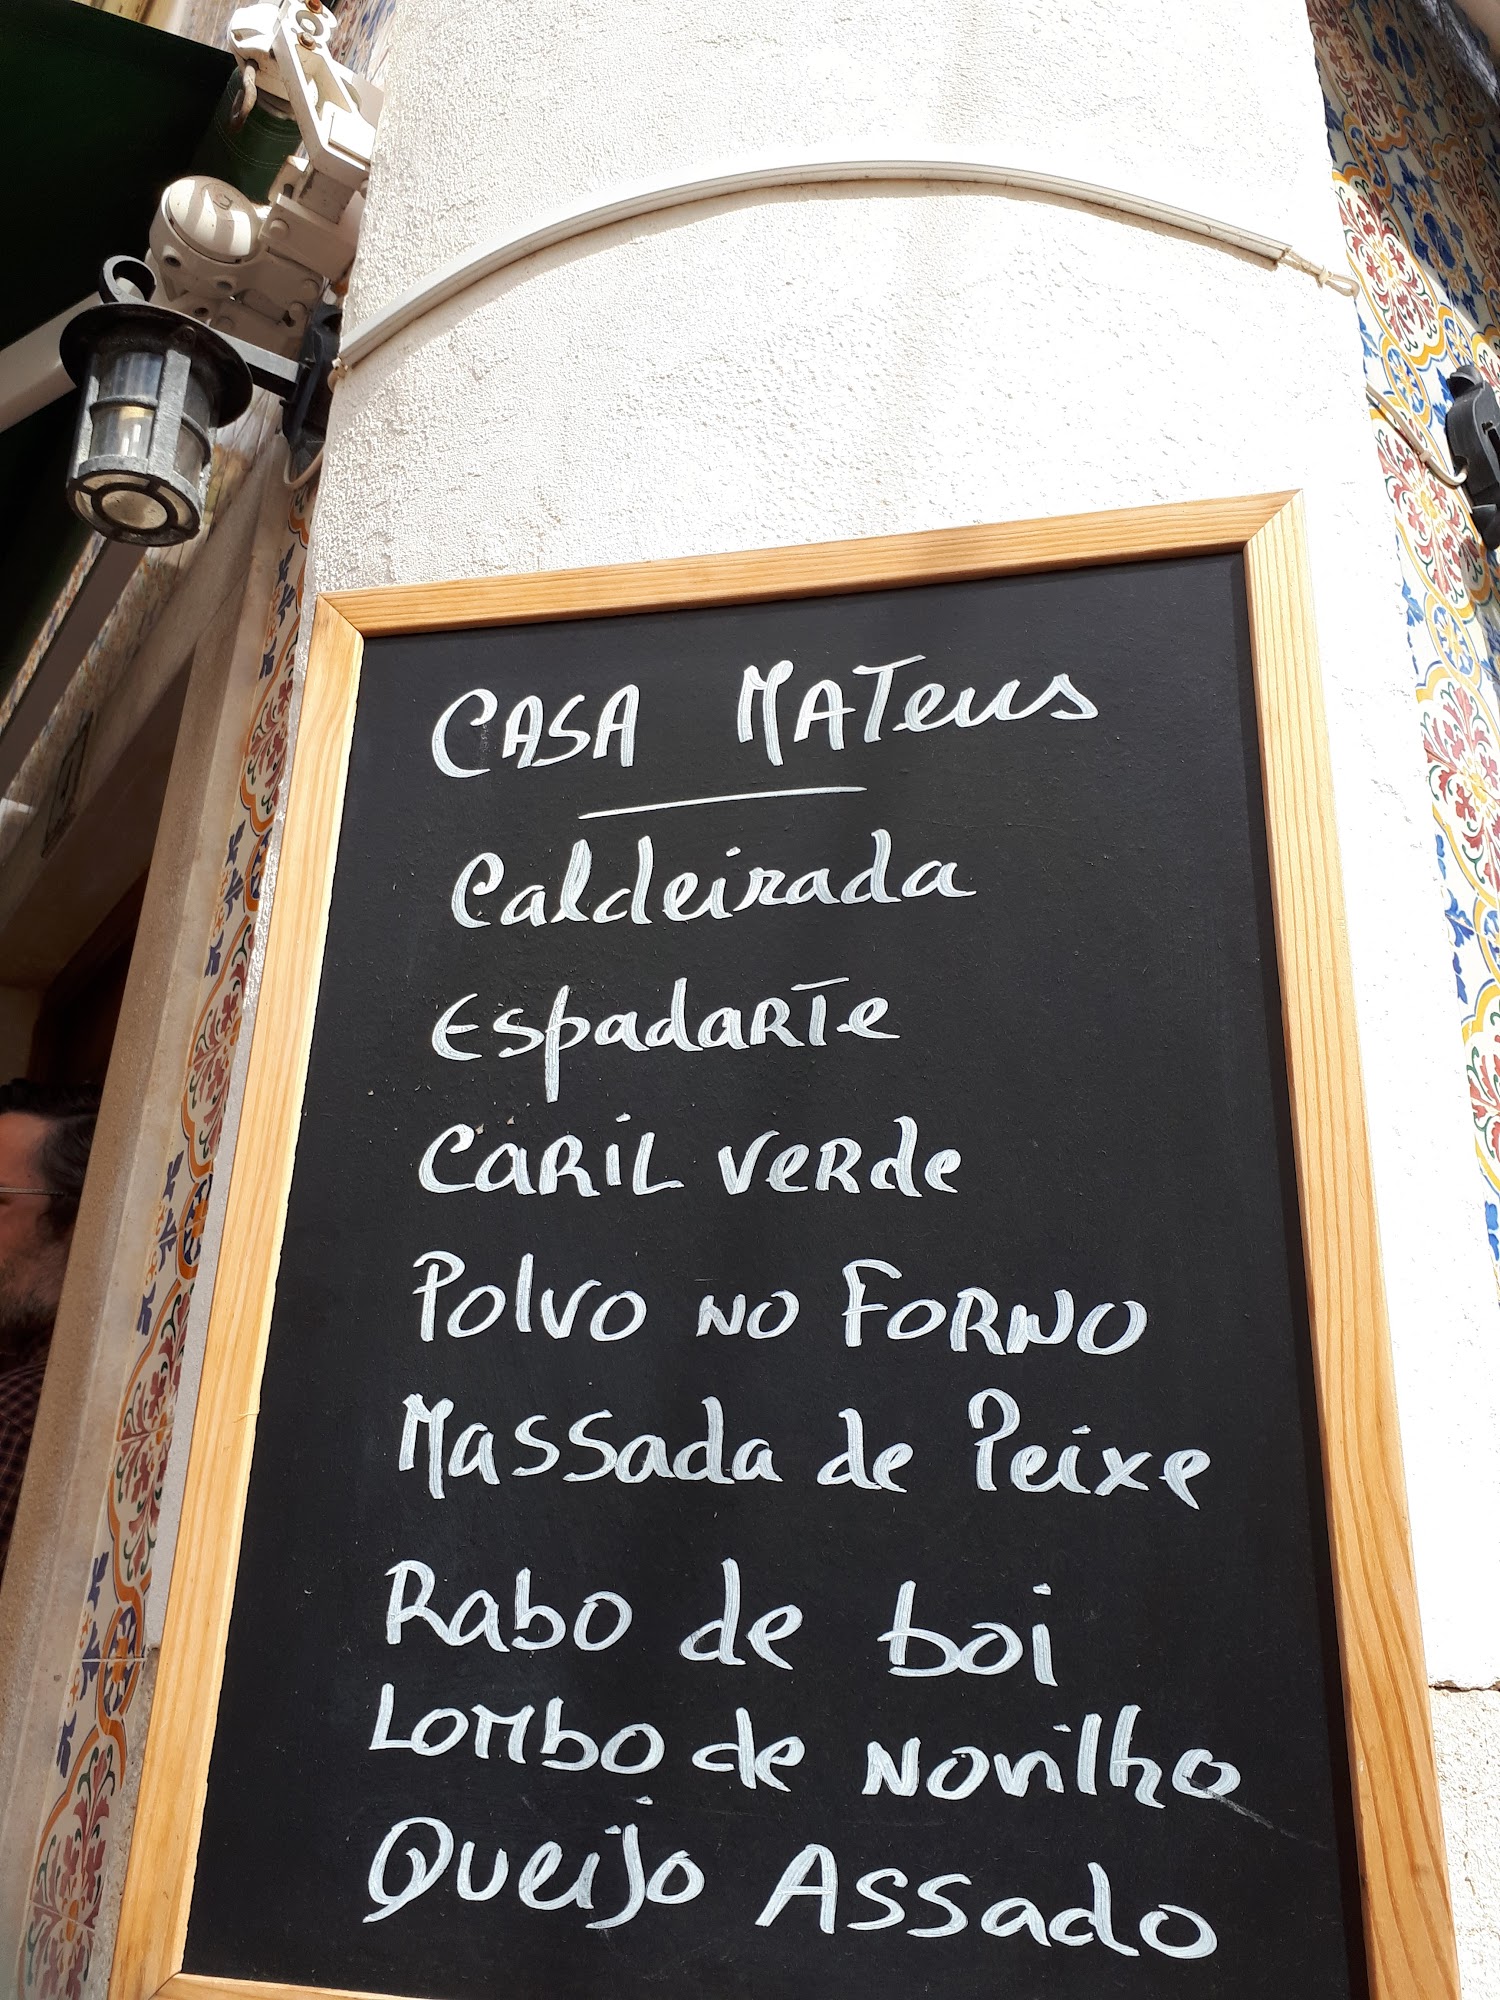 CASA MATEUS
Caldeirada
Espadarte
Caril verde
Polvo no Forno
Massada de Peixe
Rabo de boi
Lombo de Novilho
Queijo Assado